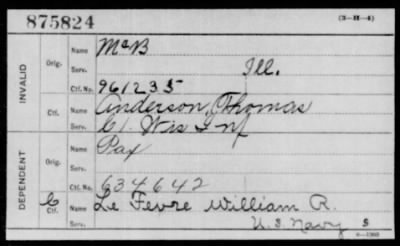 875824 (3-H-4)
INVALID
Orig. Name McB
Serv. Ill.
Ctf. No. 961235
Ctf. Name Anderson, Thomas
Serv. C 1. Wis Inf
DEPENDENT
Orig. Name Pax
Serv.
Ctf. No. 634642
C Ctf. Name Le Fevre William R.
Serv. U.S. Navy S